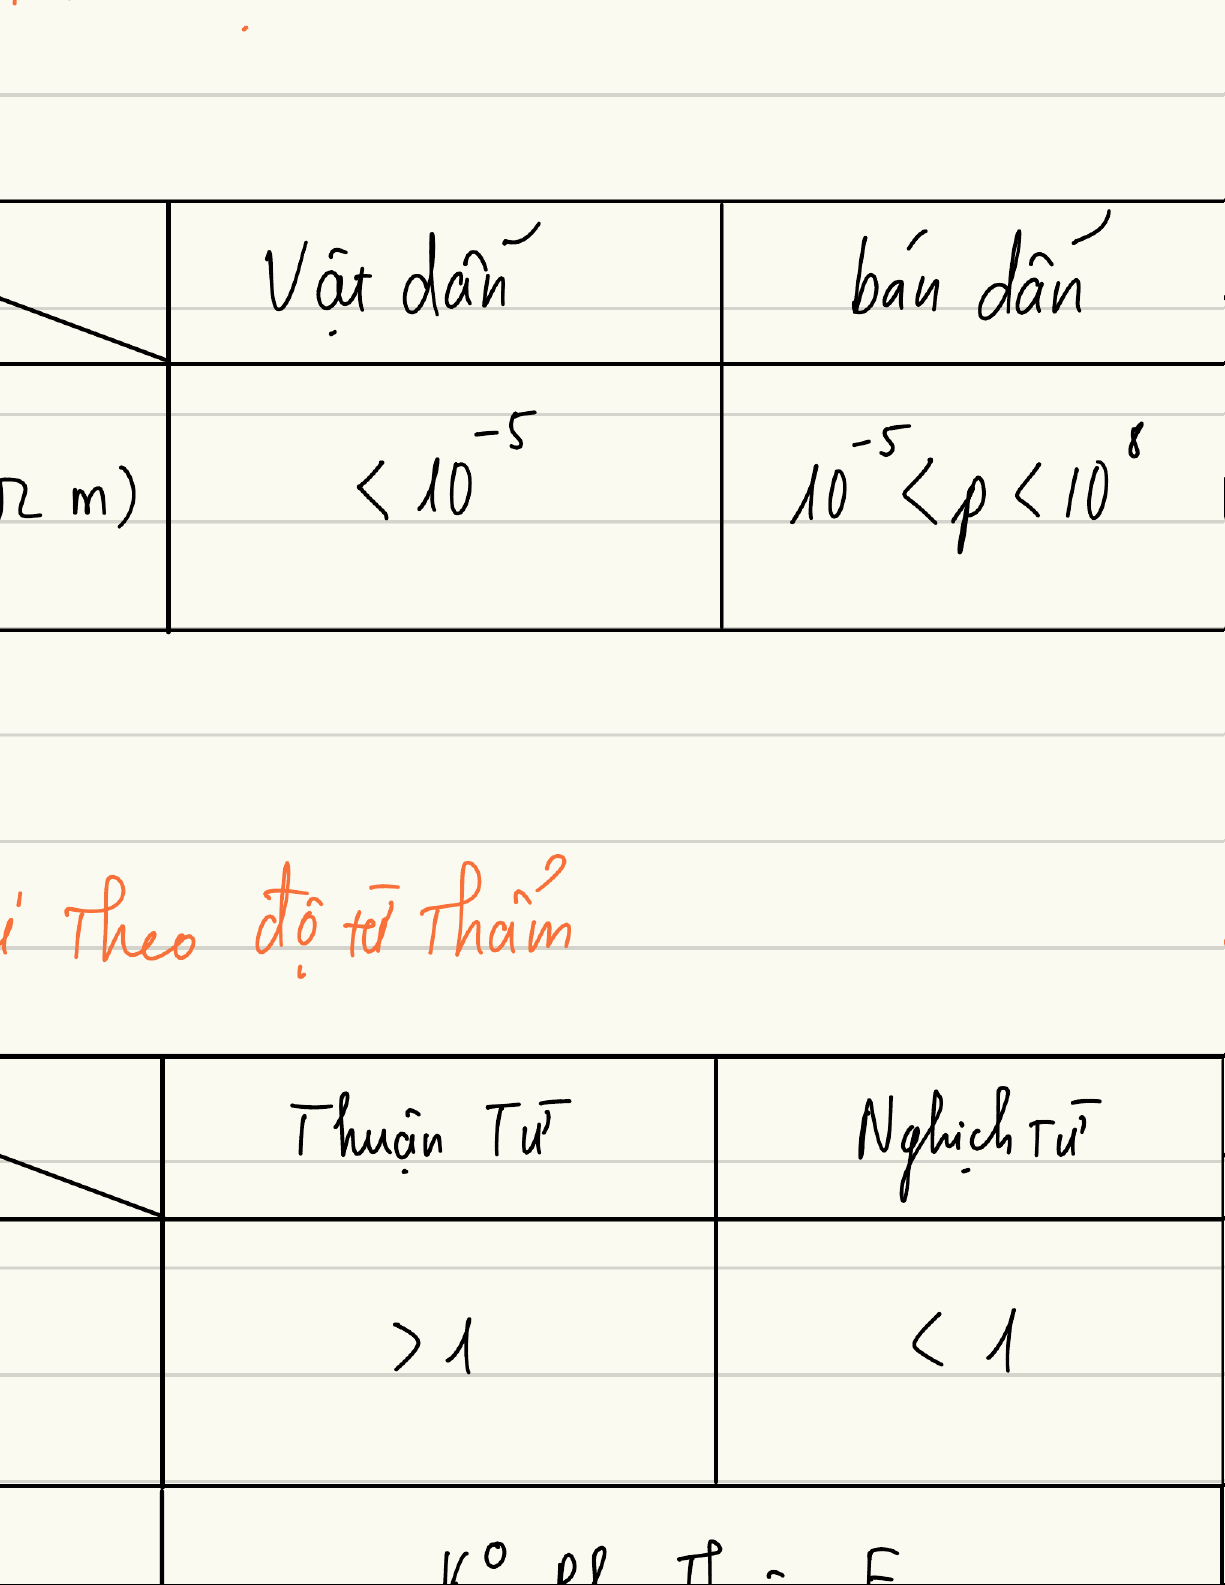 Vật dẫn bán dẫn
Ω m) < 10⁻⁵ 10⁻⁵ < ρ < 10⁸
Theo độ từ Thẩm
Thuận Từ Nghịch Từ
> 1 < 1